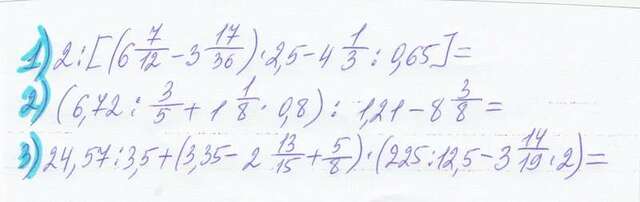 1) 2:[(6 7/12 - 3 17/36)·2,5 - 4 1/3 : 0,65]=
2) (6,72 : 3/5 + 1 1/8 · 0,8) : 1,21 - 8 3/8 =
3) 24,57:3,5+(3,35 - 2 13/15 + 5/8)·(225:12,5 - 3 14/19 · 2)=